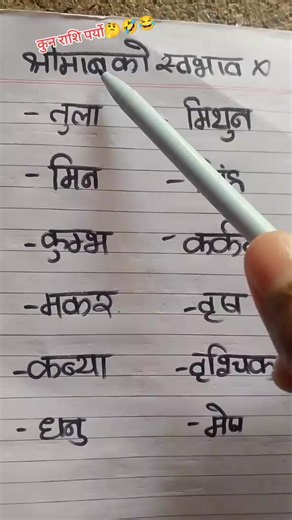 कुन राशि पर्यो🤔🤣😂
श्रीमानको स्वभाव ×
- तुला - मिथुन
- मिन -
- कुम्भ -
- मकर - वृष
- कन्या - वृश्चिक
- धनु - मेष